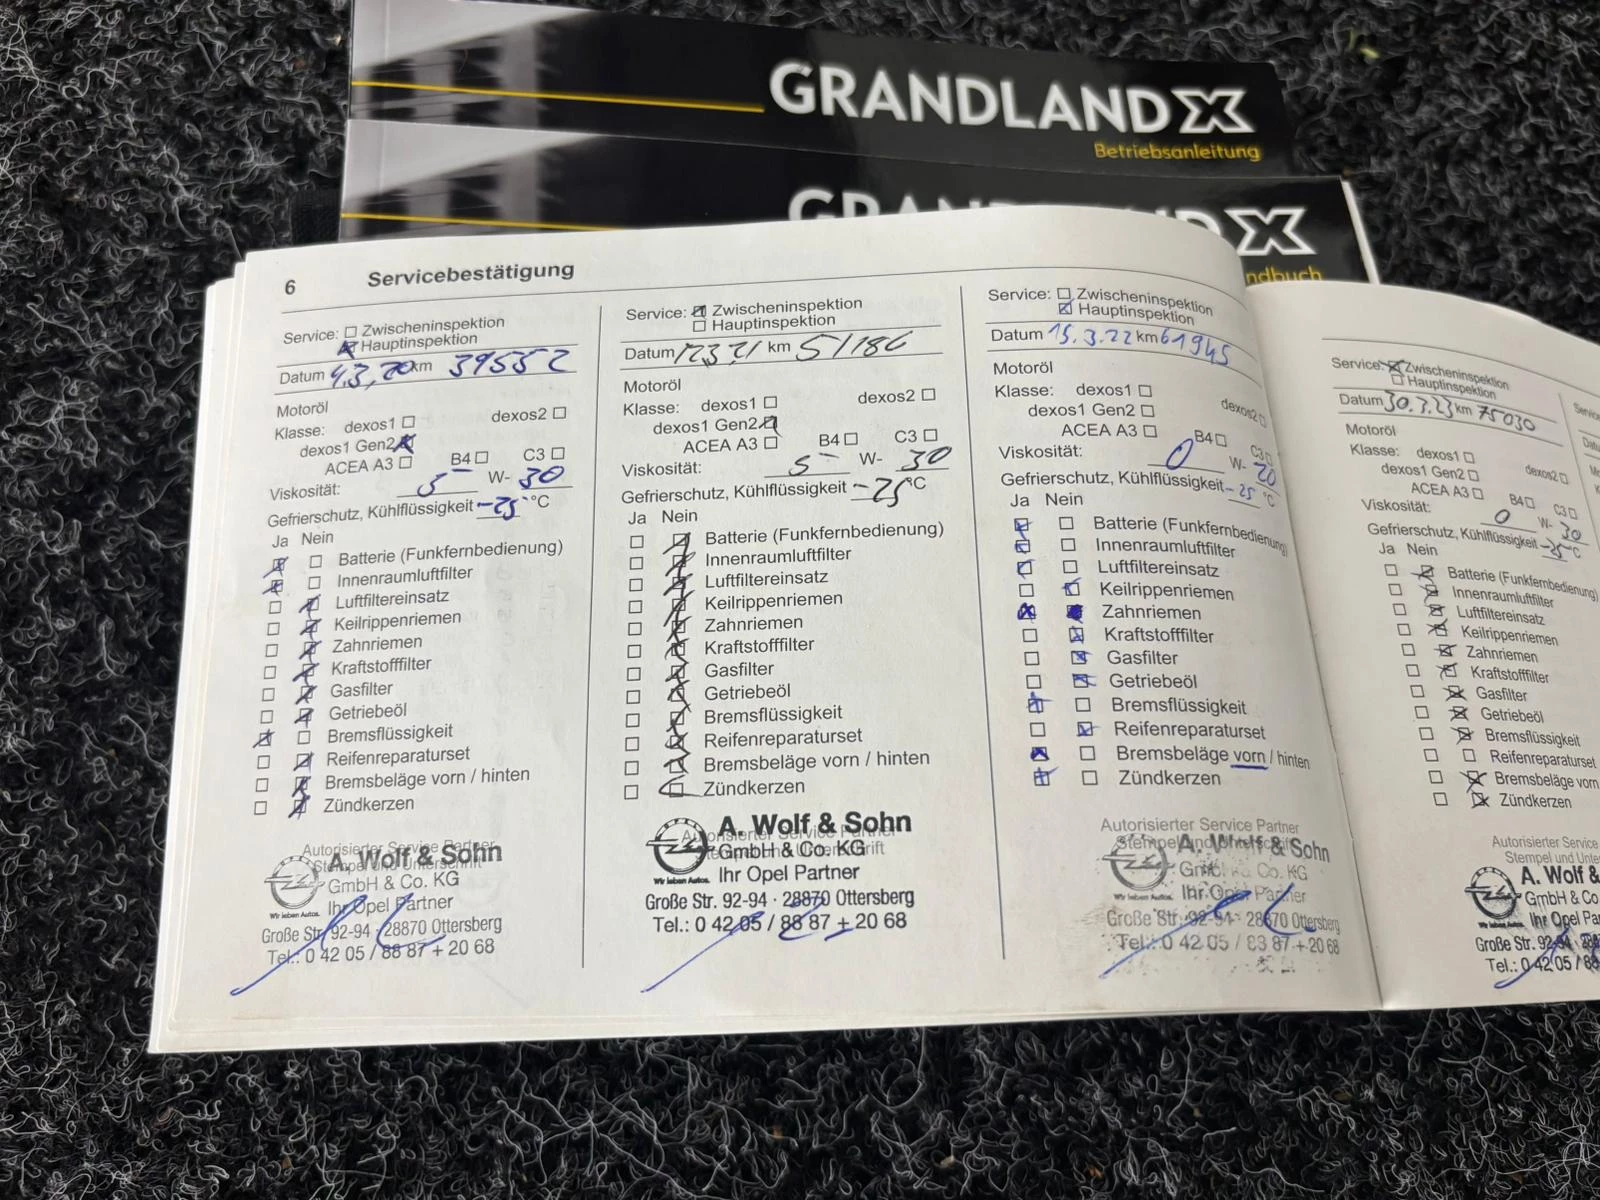 GRANDLAND X
Betriebsanleitung
X
ndbuch
6 Servicebestätigung
Service: Zwischeninspektion
Hauptinspektion
Datum 4.3.20 km 39552
Motoröl
Klasse: dexos1 dexos2
dexos1 Gen2
ACEA A3 B4 C3
Viskosität: 5 W- 30
Gefrierschutz, Kühlflüssigkeit -25 °C
Ja Nein
Batterie (Funkfernbedienung)
Innenraumluftfilter
Luftfiltereinsatz
Keilrippenriemen
Zahnriemen
Kraftstofffilter
Gasfilter
Getriebeöl
Bremsflüssigkeit
Reifenreparaturset
Bremsbeläge vorn / hinten
Zündkerzen
Autorisierter Service Partner
Stempel und Unterschrift
A. Wolf & Sohn
GmbH & Co. KG
Ihr Opel Partner
Wir leben Autos.
Große Str. 92-94 · 28870 Ottersberg
Tel.: 0 42 05 / 88 87 + 20 68
Service: Zwischeninspektion
Hauptinspektion
Datum km 51186
Motoröl
Klasse: dexos1 dexos2
dexos1 Gen2
ACEA A3 B4 C3
Viskosität: 5 W- 30
Gefrierschutz, Kühlflüssigkeit -25 °C
Ja Nein
Batterie (Funkfernbedienung)
Innenraumluftfilter
Luftfiltereinsatz
Keilrippenriemen
Zahnriemen
Kraftstofffilter
Gasfilter
Getriebeöl
Bremsflüssigkeit
Reifenreparaturset
Bremsbeläge vorn / hinten
Zündkerzen
A. Wolf & Sohn
GmbH & Co. KG
Ihr Opel Partner
Wir leben Autos.
Große Str. 92-94 · 28870 Ottersberg
Tel.: 0 42 05 / 88 87 + 20 68
Service: Zwischeninspektion
Hauptinspektion
Datum 15.3.22 km 61945
Motoröl
Klasse: dexos1 dexos2
dexos1 Gen2
ACEA A3 B4 C3
Viskosität: 0 W- 20
Gefrierschutz, Kühlflüssigkeit -25 °C
Ja Nein
Batterie (Funkfernbedienung)
Innenraumluftfilter
Luftfiltereinsatz
Keilrippenriemen
Zahnriemen
Kraftstofffilter
Gasfilter
Getriebeöl
Bremsflüssigkeit
Reifenreparaturset
Bremsbeläge vorn / hinten
Zündkerzen
Autorisierter Service Partner
Stempel und Unterschrift
A. Wolf & Sohn
GmbH & Co. KG
Ihr Opel Partner
Große Str. 92-94 · 28870 Ottersberg
Tel.: 0 42 05 / 88 87 + 20 68
Service: Zwischeninspektion
Hauptinspektion
Datum 30.3.23 km 75030
Motoröl
Klasse: dexos1 dexos2
dexos1 Gen2
ACEA A3 B4 C3
Viskosität: 0 W- 30
Gefrierschutz, Kühlflüssigkeit -25 °C
Ja Nein
Batterie (Funkfernbedienung)
Innenraumluftfilter
Luftfiltereinsatz
Keilrippenriemen
Zahnriemen
Kraftstofffilter
Gasfilter
Getriebeöl
Bremsflüssigkeit
Reifenreparaturset
Bremsbeläge vorn
Zündkerzen
Autorisierter Service
Stempel und Unte
A. Wolf &
GmbH & Co.
Ihr Opel Pa
Große Str. 92-94
Tel.: 0 42 05 / 88